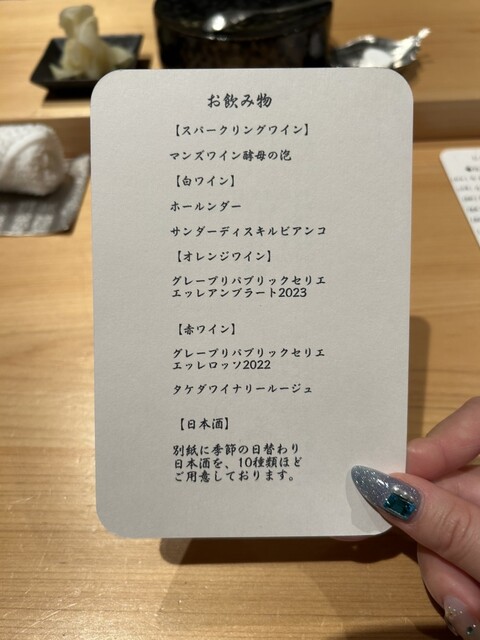 お飲み物
【スパークリングワイン】
マンズワイン酵母の泡
【白ワイン】
ホールンダー
サンダーディスキルビアンコ
【オレンジワイン】
グレープリパブリックセリエ
エッレアンブラート2023
【赤ワイン】
グレープリパブリックセリエ
エッレロッソ2022
タケダワイナリールージュ
【日本酒】
別紙に季節の日替わり
日本酒を、10種類ほど
ご用意しております。